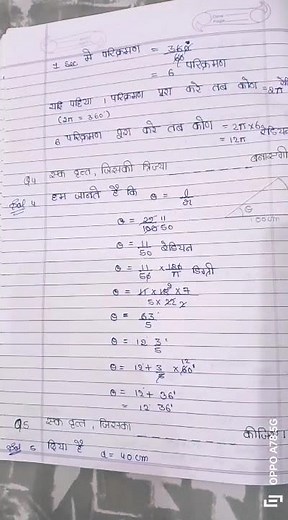 1 sec में परिक्रमण = 360/60
= 6 परिक्रमण
यदि पहिया 1 परिक्रमण पूरा करे तब कोण = 2π
(2π = 360°)
6 परिक्रमण पूरा करे तब कोण = 2π×6
= 12π
Q4 एक वृत्त, जिसकी त्रिज्या
Sol 4 हम जानते हैं कि θ = l/r
θ
100cm
θ = 22 11/100 50
θ = 11/50 रेडियन
θ = 11/50 × 180/π डिग्री
θ = 11 × 18 × 7/5 × 22
θ = 63/5
θ = 12 3/5
θ = 12 + 3/5 × 60'
12
θ = 12° + 36'
= 12° 36'
Q5 एक वृत्त, जिसका
Sol 5 दिया है d = 40 cm
OPPO A78 5G